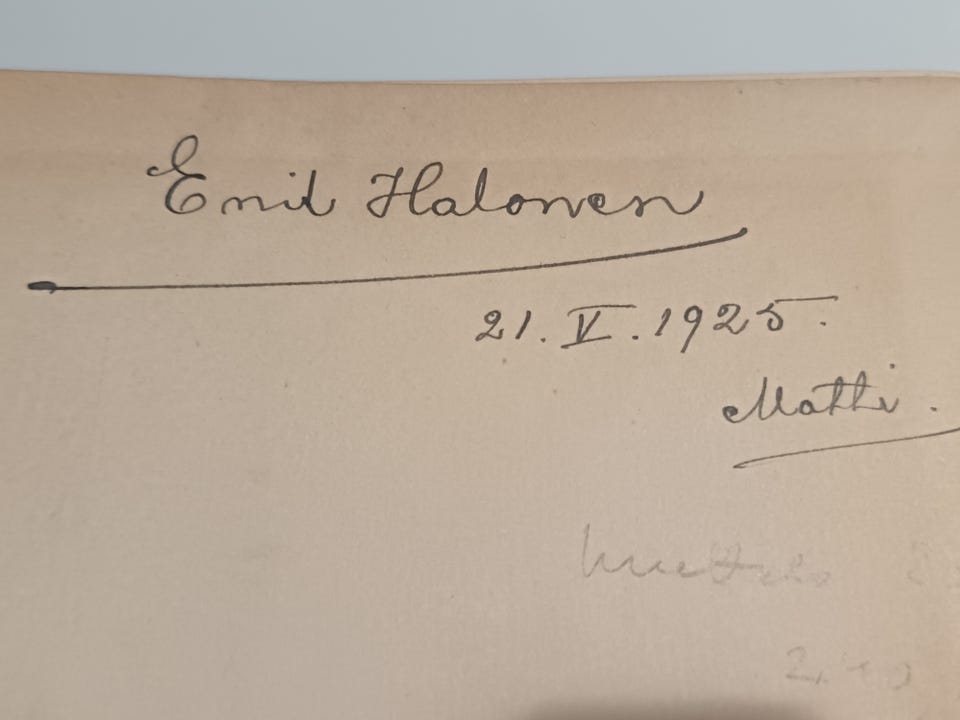 Emil Halonen
21. V. 1925.
Matti.